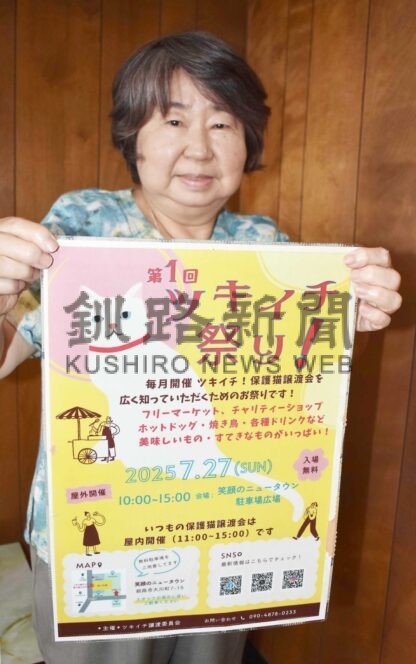 第1回
ツキイチ
祭り!
釧路新聞
KUSHIRO NEWS WEB
毎月開催 ツキイチ!保護猫譲渡会を
広く知っていただくためのお祭りです!
フリーマーケット、チャリティーショップ
ホットドッグ・焼き鳥・各種ドリンクなど
美味しいもの・すてきなものがいっぱい!
2025 7.27(SUN)
入場
無料
屋外開催
10:00~15:00 会場:笑顔のニュータウン
駐車場広場
いつもの保護猫譲渡会は
屋内開催(11:00~15:00)です
MAP
笑顔のニュータウン
SNS
最新情報はこちらでチェック!
*主催*ツキイチ譲渡委員会
お問い合わせ 090-4878-0233